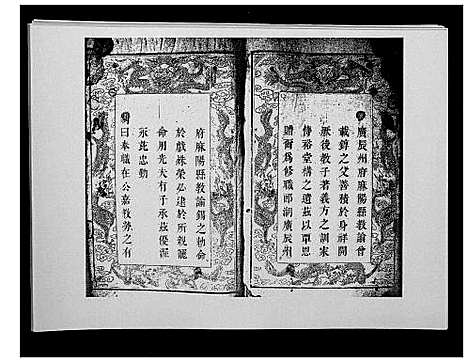 廣辰州府麻陽縣教諭曾
載錞之父善積於身祥開
厥後教子著義方之訓家
傳裕堂構之遺茲以覃恩
贈爾為修職郎湖廣辰州
府麻陽縣教諭錫之勅命
於戲殊榮必逮於所親寵
命用光夫有子承茲優渥
永茲忠勤
制曰奉職在公嘉教勞之有